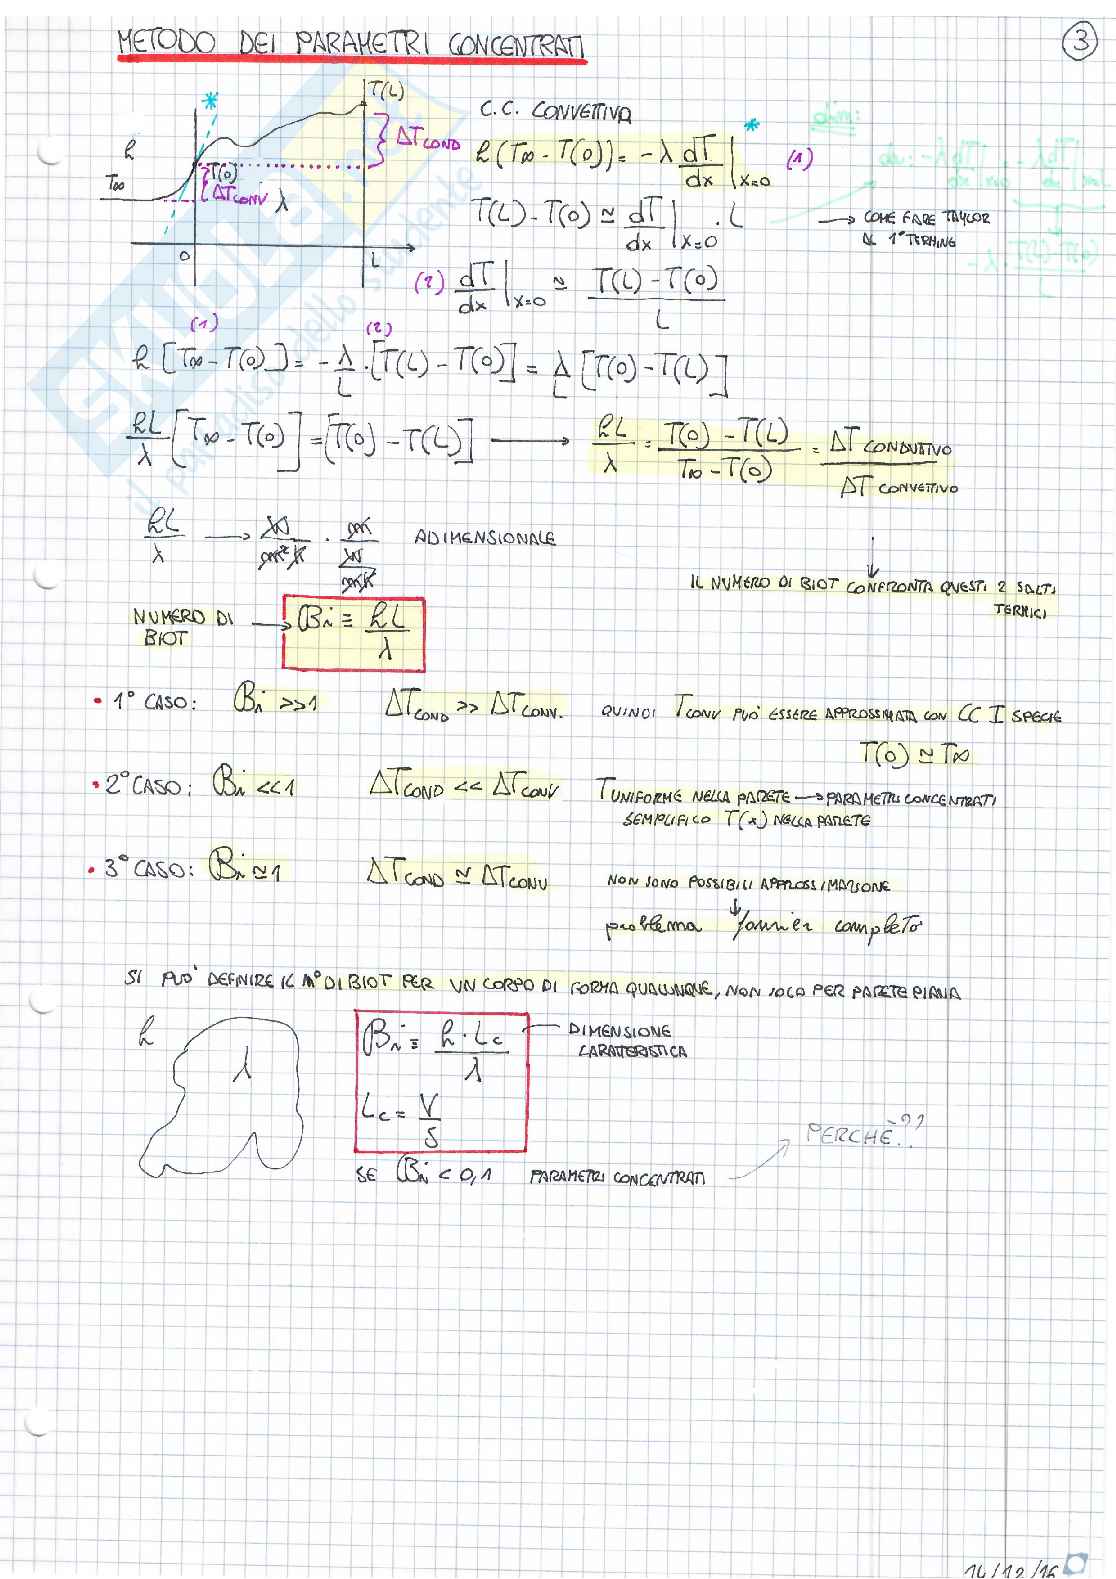 METODO DEI PARAMETRI CONCENTRATI
3
T(L)
C.C. CONVETTIVA
ΔTCOND
h
h (T∞ - T(0)) = -λ dT/dx |x=0 (1)
T∞
T(0)
ΔTCONV λ
T(L) - T(0) ≃ dT/dx |x=0 . L → COME FARE TAYLOR
AL 1° TERMINE
0
L
(2) dT/dx |x=0 ≃ T(L) - T(0) / L
(1) (2)
h [T∞ - T(0)] = - λ/L · [T(L) - T(0)] = λ/L [T(0) - T(L)]
hL/λ [T∞ - T(0)] = [T(0) - T(L)] → hL/λ = T(0) - T(L) / T∞ - T(0) = ΔT CONDUTTIVO / ΔT CONVETTIVO
hL/λ → W/m²K · m/(W/mK) ADIMENSIONALE
IL NUMERO DI BIOT CONFRONTA QUESTI 2 SALTI
TERMICI
NUMERO DI
BIOT → Bi ≡ hL/λ
• 1° CASO: Bi >>1 ΔTCOND >> ΔTCONV. QUINDI TCONV PUO' ESSERE APPROSSIMATA CON CC I SPECIE
T(0) ≃ T∞
• 2° CASO: Bi <<1 ΔTCOND << ΔTCONV T UNIFORME NELLA PARETE → PARAMETRI CONCENTRATI
SEMPLIFICO T(x) NELLA PARETE
• 3° CASO: Bi ≃ 1 ΔTCOND ≃ ΔTCONV NON SONO POSSIBILI APPROSSIMAZIONE
problema fourier completo
SI PUO' DEFINIRE IL N° DI BIOT PER UN CORPO DI FORMA QUALUNQUE, NON SOLO PER PARETE PIANA
h
λ
Bi ≡ h · Lc / λ
DIMENSIONE
CARATTERISTICA
Lc = V/S
PERCHÈ??
SE Bi < 0,1 PARAMETRI CONCENTRATI
14/12/16